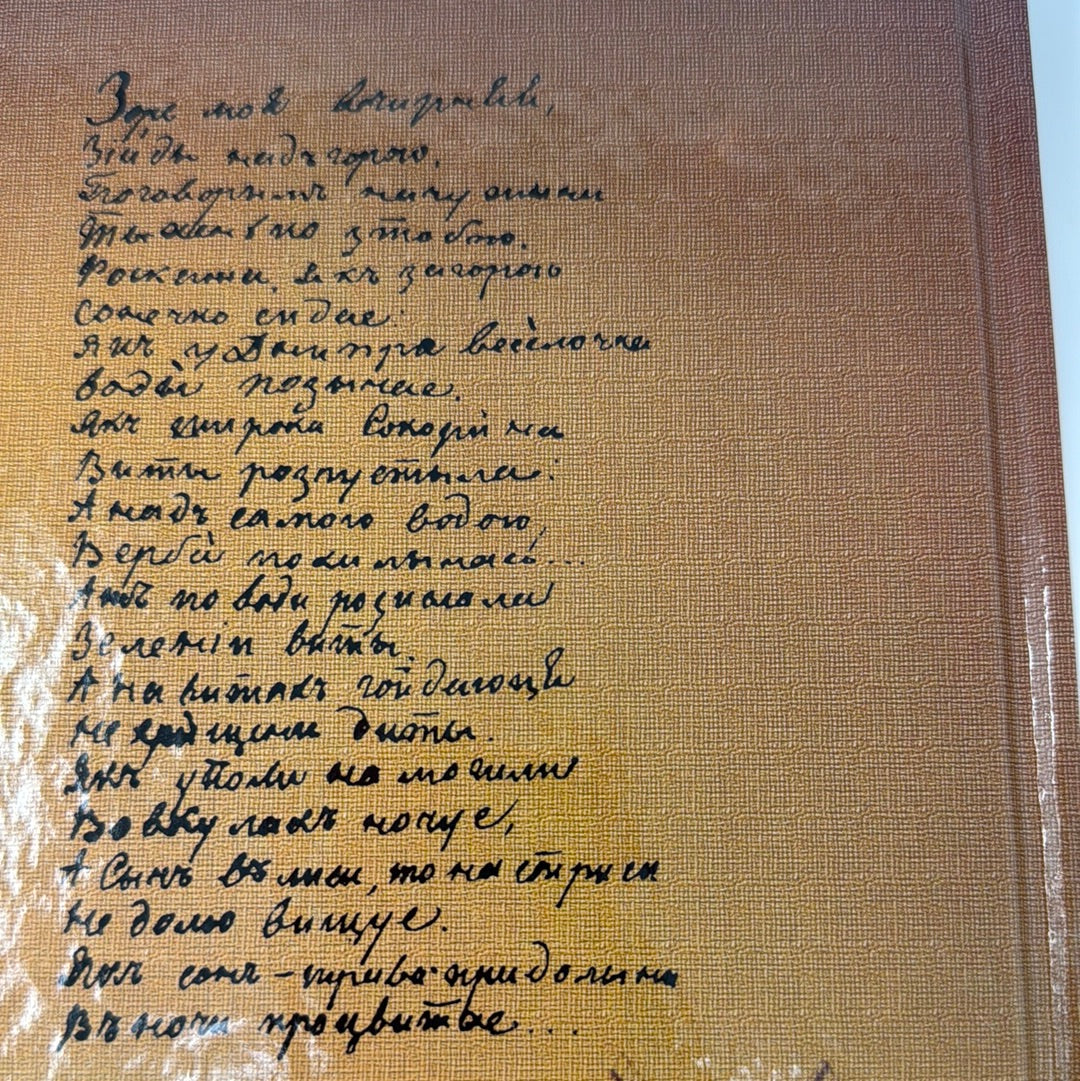 Зоре моя вечирняя,
Зійды надъ горою.
Поговорымъ
Тыхесенько зтобою.
Роскажи, якъ загорою
Сонечко сидае:
Якъ у Днипра весёлочка
воду позычае.
Якъ широка Сокорина
Виты розпустыла:
А надъ самою водою,
Верба похилылась...
Ажъ по води розислала
Зеленіи виты,
А на витахъ гойдаютця
не хрищени диты.
Якъ уполи на могили
Вовкулакъ ночуе,
А Сычъ въ лиси, то на стриси
не долю вищуе.
Якъ сонъ-трава при долини
Въ ночи процвитае...